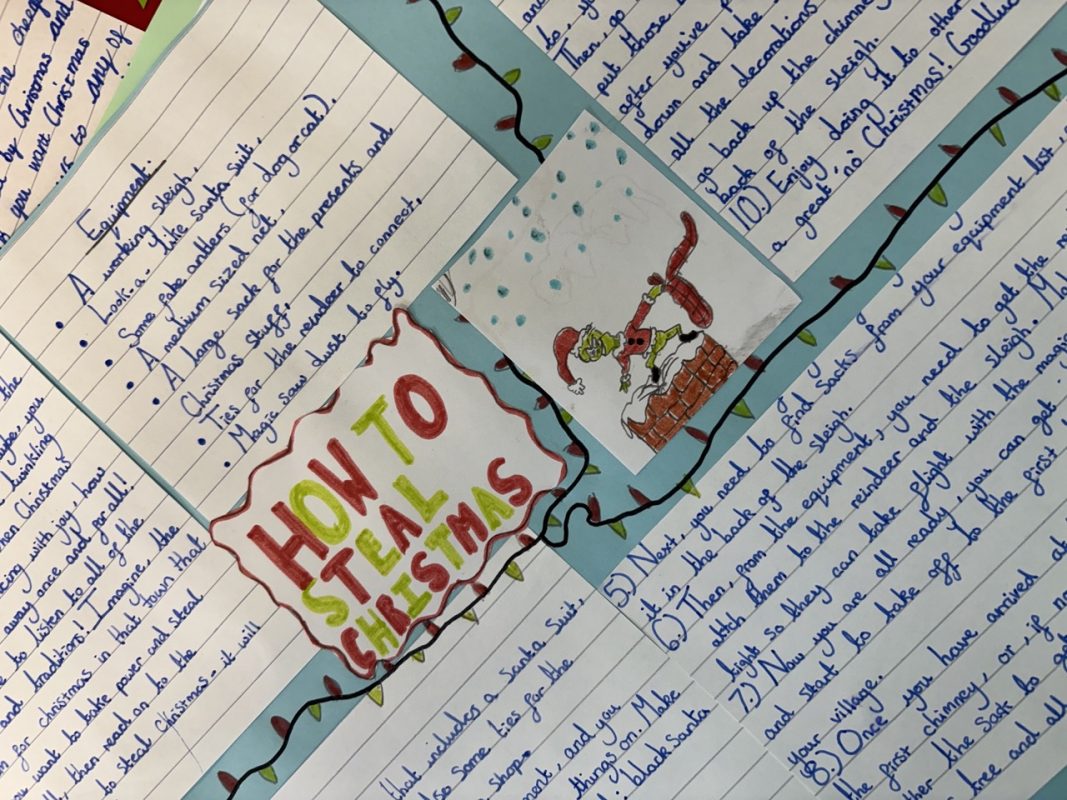 one cheeg
by Christmas and
you want Christmas
any of
to
Equipment:
• A working sleigh.
• Look-a-like santa suit,
• Some fake antlers (for dog or cat).
• A medium sized net,
• A large sack for the presents and
Christmas stuff,
• Ties for the reindeer to connect,
• Magic Saw dust to fly.
HOW TO
STEAL
CHRISTMAS
the
you
twinkling
Christmas
with joy, how
away once and for all!
to listen to all of the
and traditions! I imagine, the
for christmas in that town that
want to take power and steal
then read on to the
to steal christmas - it will
to, you
Then, go
put those
after you've
down and take
all the decorations
go back up the chimney
back of the sleigh.
10.) Enjoy doing it to other
a great 'no' Christmas! Goodluc
from your equipment list,
5.) Next, you need to find Sacks
it in the back of the sleigh.
6.) Then, from the equipment, you need to get the
attch them to the reindeer and the sleigh.
tight so they can take flight with the magic
7.) Now you are all ready, you can get
and start to take off to the first
your village.
8.) Once you have arrived at
the first chimney, or, if no
the Sack to
tree and all
that includes a santa suit,
some ties for the
shop.
ment, and you
things on. Make
black Santa